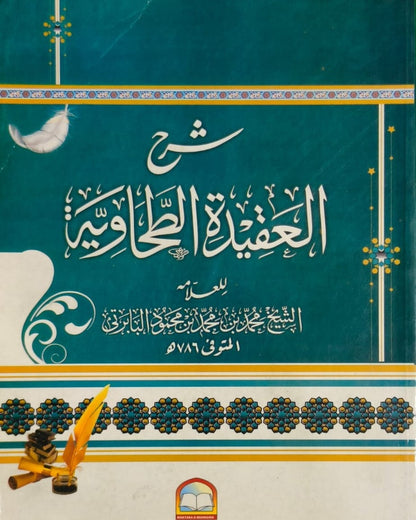 شرح
العقيدة الطحاوية
للعلامه
الشيخ محمد بن محمد بن محمود البابرتي
المتوفى ٧٨٦ھ